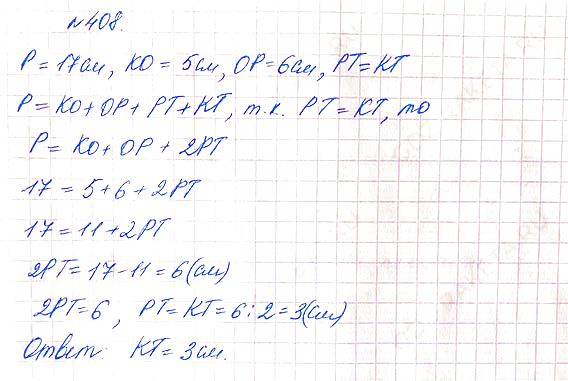 №408.
P = 17 см, KO = 5 см, OP = 6 см, PT = KT
P = KO + OP + PT + KT, т.к. PT = KT, то
P = KO + OP + 2PT
17 = 5 + 6 + 2PT
17 = 11 + 2PT
2PT = 17 - 11 = 6 (см)
2PT = 6, PT = KT = 6 : 2 = 3 (см)
Ответ: KT = 3 см.